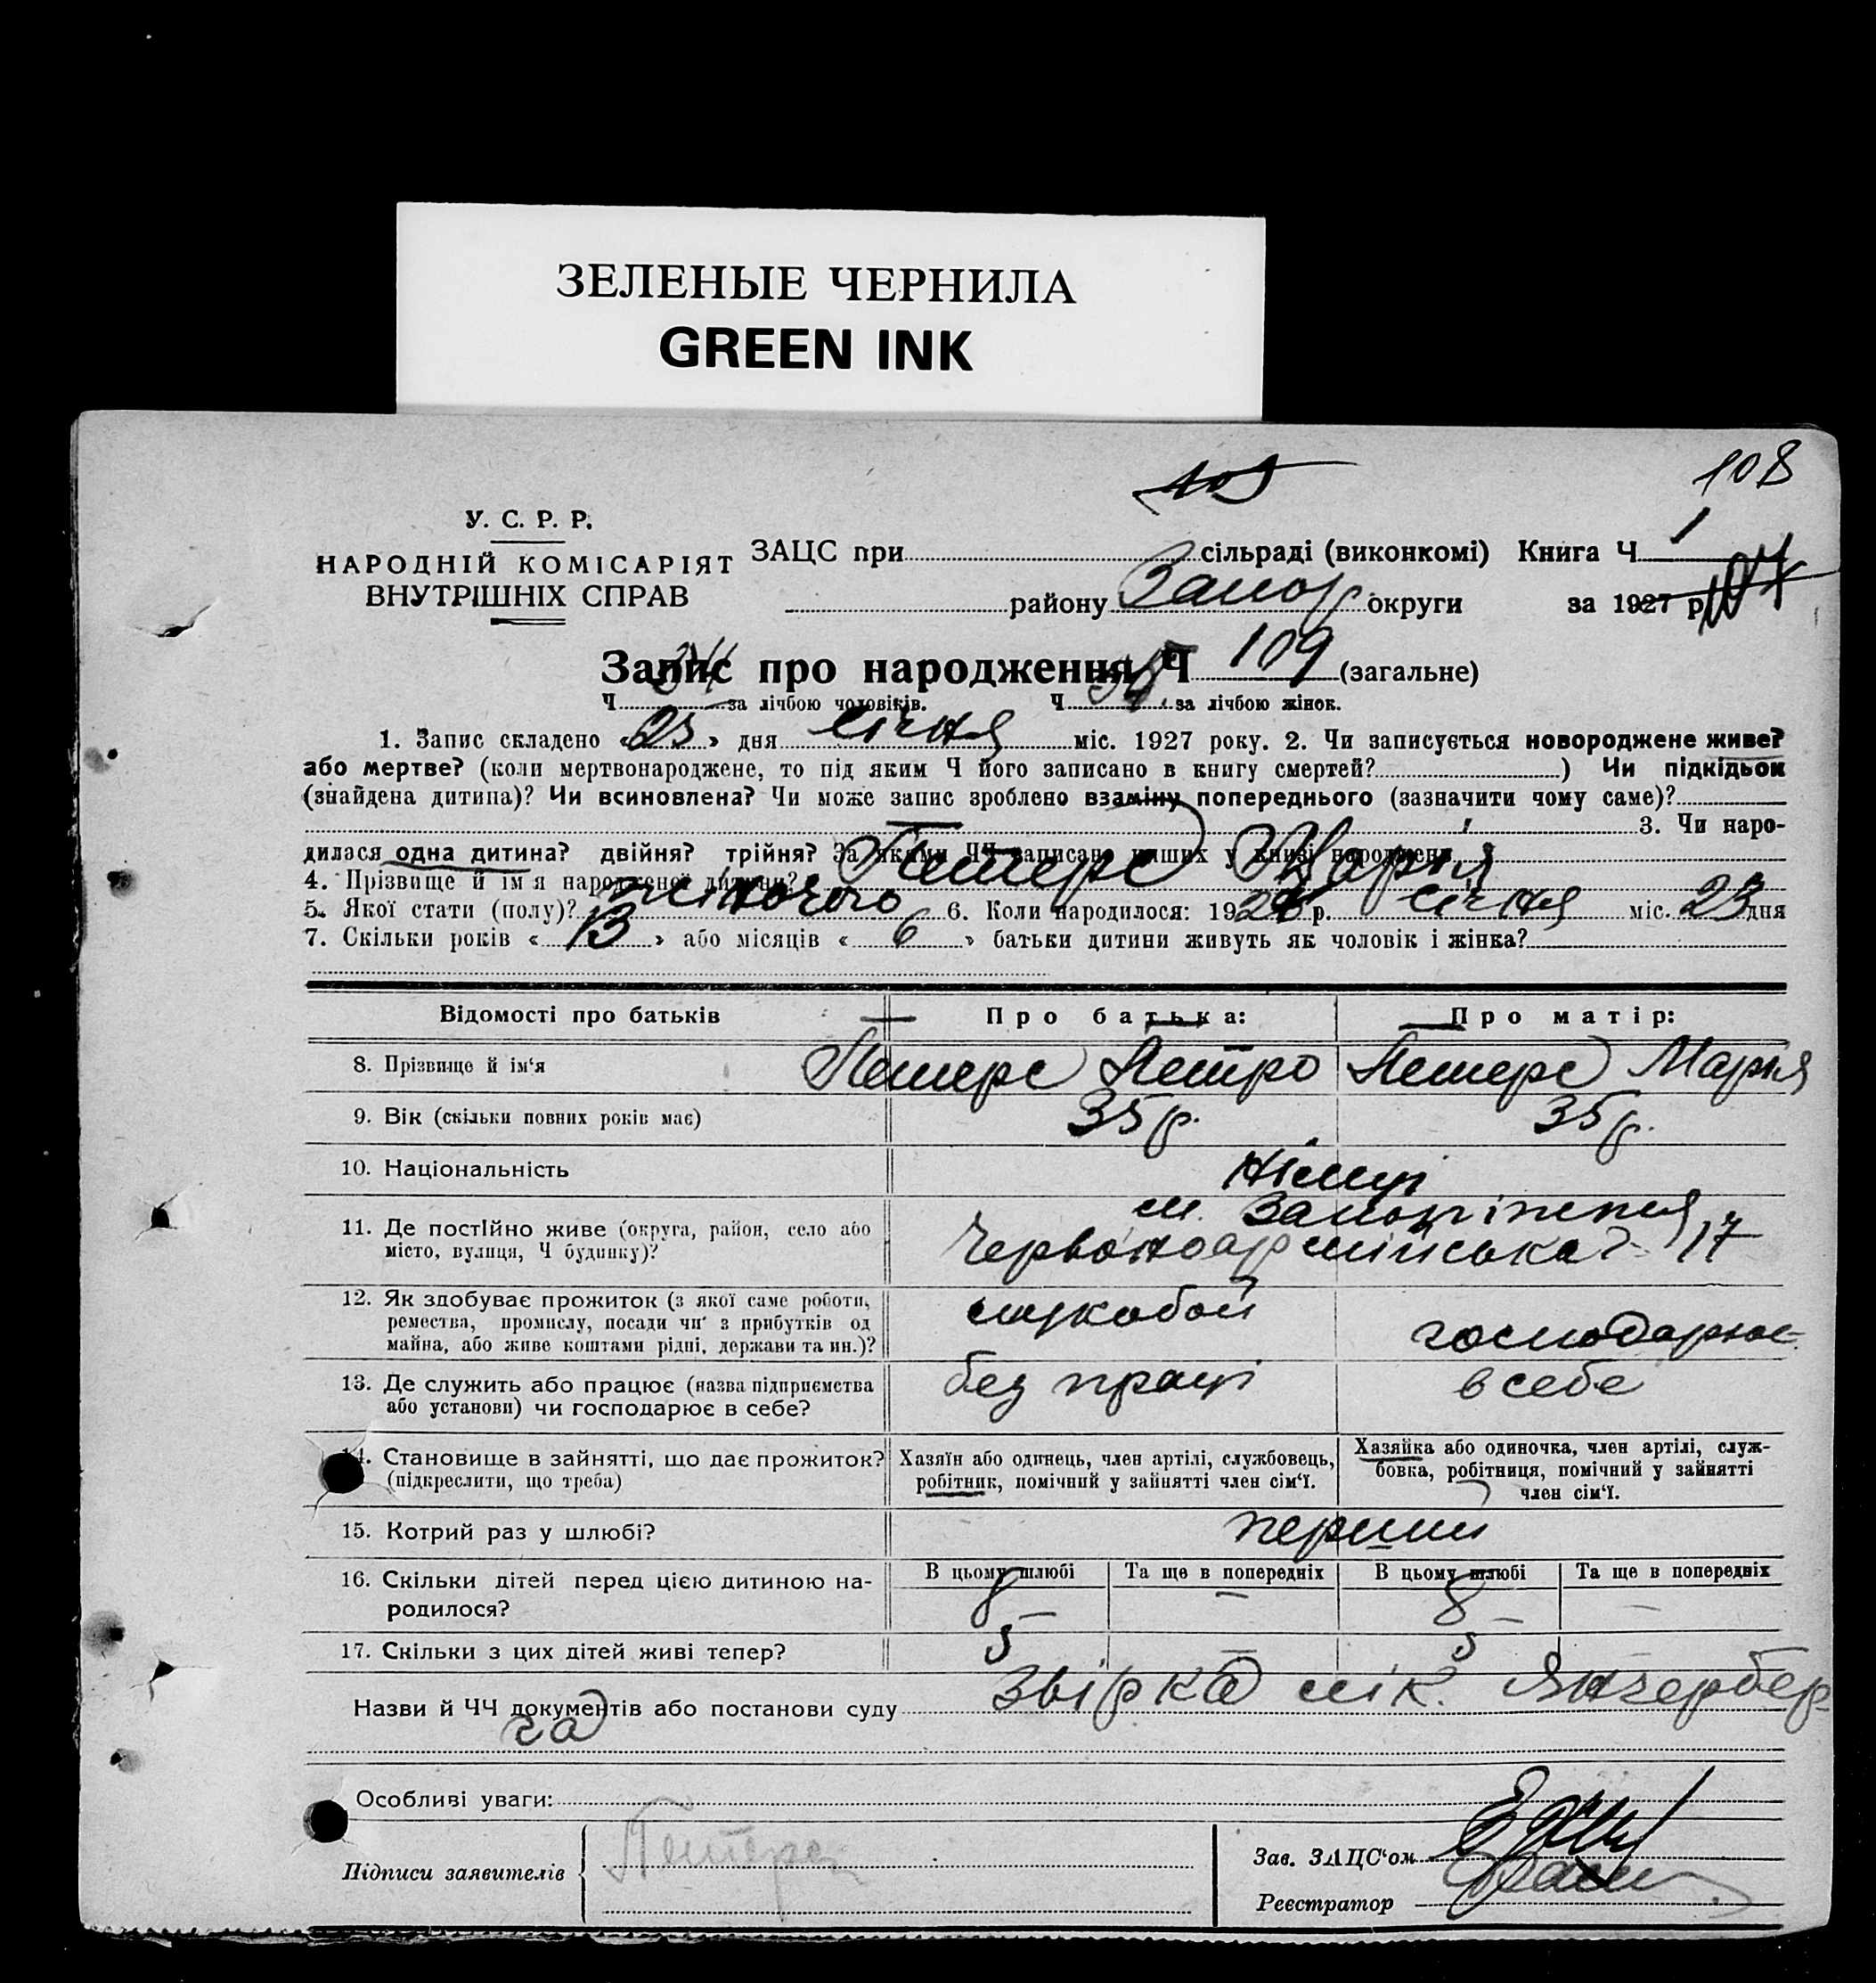 ЗЕЛЕНЫЕ ЧЕРНИЛА
GREEN INK
108
У. С. Р. Р.
НАРОДНІЙ КОМІСАРІЯТ
ВНУТРІШНІХ СПРАВ
ЗАЦС при сільраді (виконкомі) Книга Ч 1
району Запор округи за 1927 р.
Запис про народження Ч 109 (загальне)
Ч за лічбою чоловіків. Ч за лічбою жінок.
1. Запис складено «25» дня січня міс. 1927 року. 2. Чи записується новороджене живе?
або мертве? (коли мертвонароджене, то під яким Ч його записано в книгу смертей? ) Чи підкідьок
(знайдена дитина)? Чи всиновлена? Чи може запис зроблено взаміну попереднього (зазначити чому саме)?
3. Чи наро-
дилася одна дитина? двійня? трійня? За якими ЧЧ записано инших у книзі народжень
4. Прізвище й ім'я народженої дитини? Петерс Марія
5. Якої стати (полу)? жіночого 6. Коли народилося: 192 р. січня міс. 23 дня
7. Скільки років «13» або місяців «6» батьки дитини живуть як чоловік і жінка?
Відомості про батьків Про батька: Про матір:
8. Прізвище й ім'я Петерс Петро Петерс Марія
9. Вік (скільки повних років має) 35 р. 35 р.
10. Національність Німці
11. Де постійно живе (округа, район, село або місто, вулиця, Ч будинку)? м. Запоріжжя
Червоноармійська 17
12. Як здобуває прожиток (з якої саме роботи,
ремества, промислу, посади чи з прибутків од
майна, або живе коштами рідні, держави та ин.)? господарює
13. Де служить або працює (назва підприємства
або установи) чи господарює в себе? без праці в себе
14. Становище в зайнятті, що дає прожиток?
(підкреслити, що треба)
Хазяїн або одинець, член артілі, службовець,
робітник, помічний у зайнятті член сім'ї.
Хазяйка або одиночка, член артілі, служ-
бовка, робітниця, помічний у зайнятті
член сім'ї.
15. Котрий раз у шлюбі? перший
16. Скільки дітей перед цією дитиною на-
родилося?
В цьому шлюбі Та ще в попередніх В цьому шлюбі Та ще в попередніх
8 – 8 –
17. Скільки з цих дітей живі тепер? 5 – 5 –
Назви й ЧЧ документів або постанови суду Звірка лік. Янзербер
га
Особливі уваги:
Підписи заявителів Петерс
Зав. ЗАЦС'ом
Реєстратор